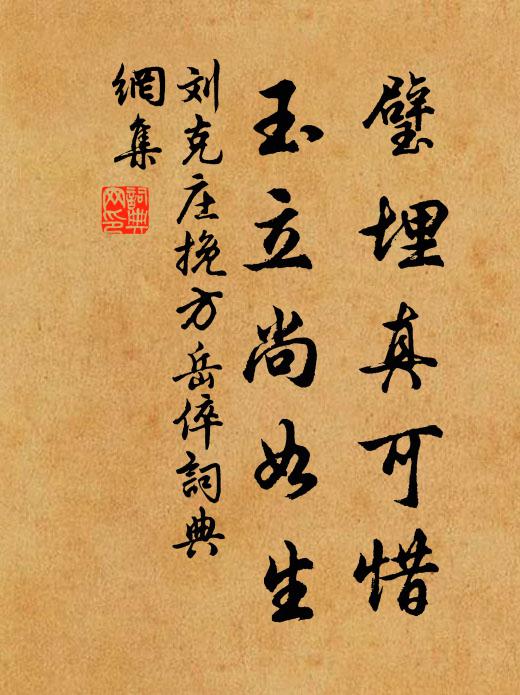 璧埋真可惜
玉立尚如生
刘克庄挽方岳倅詞典
網集
詞典
网印